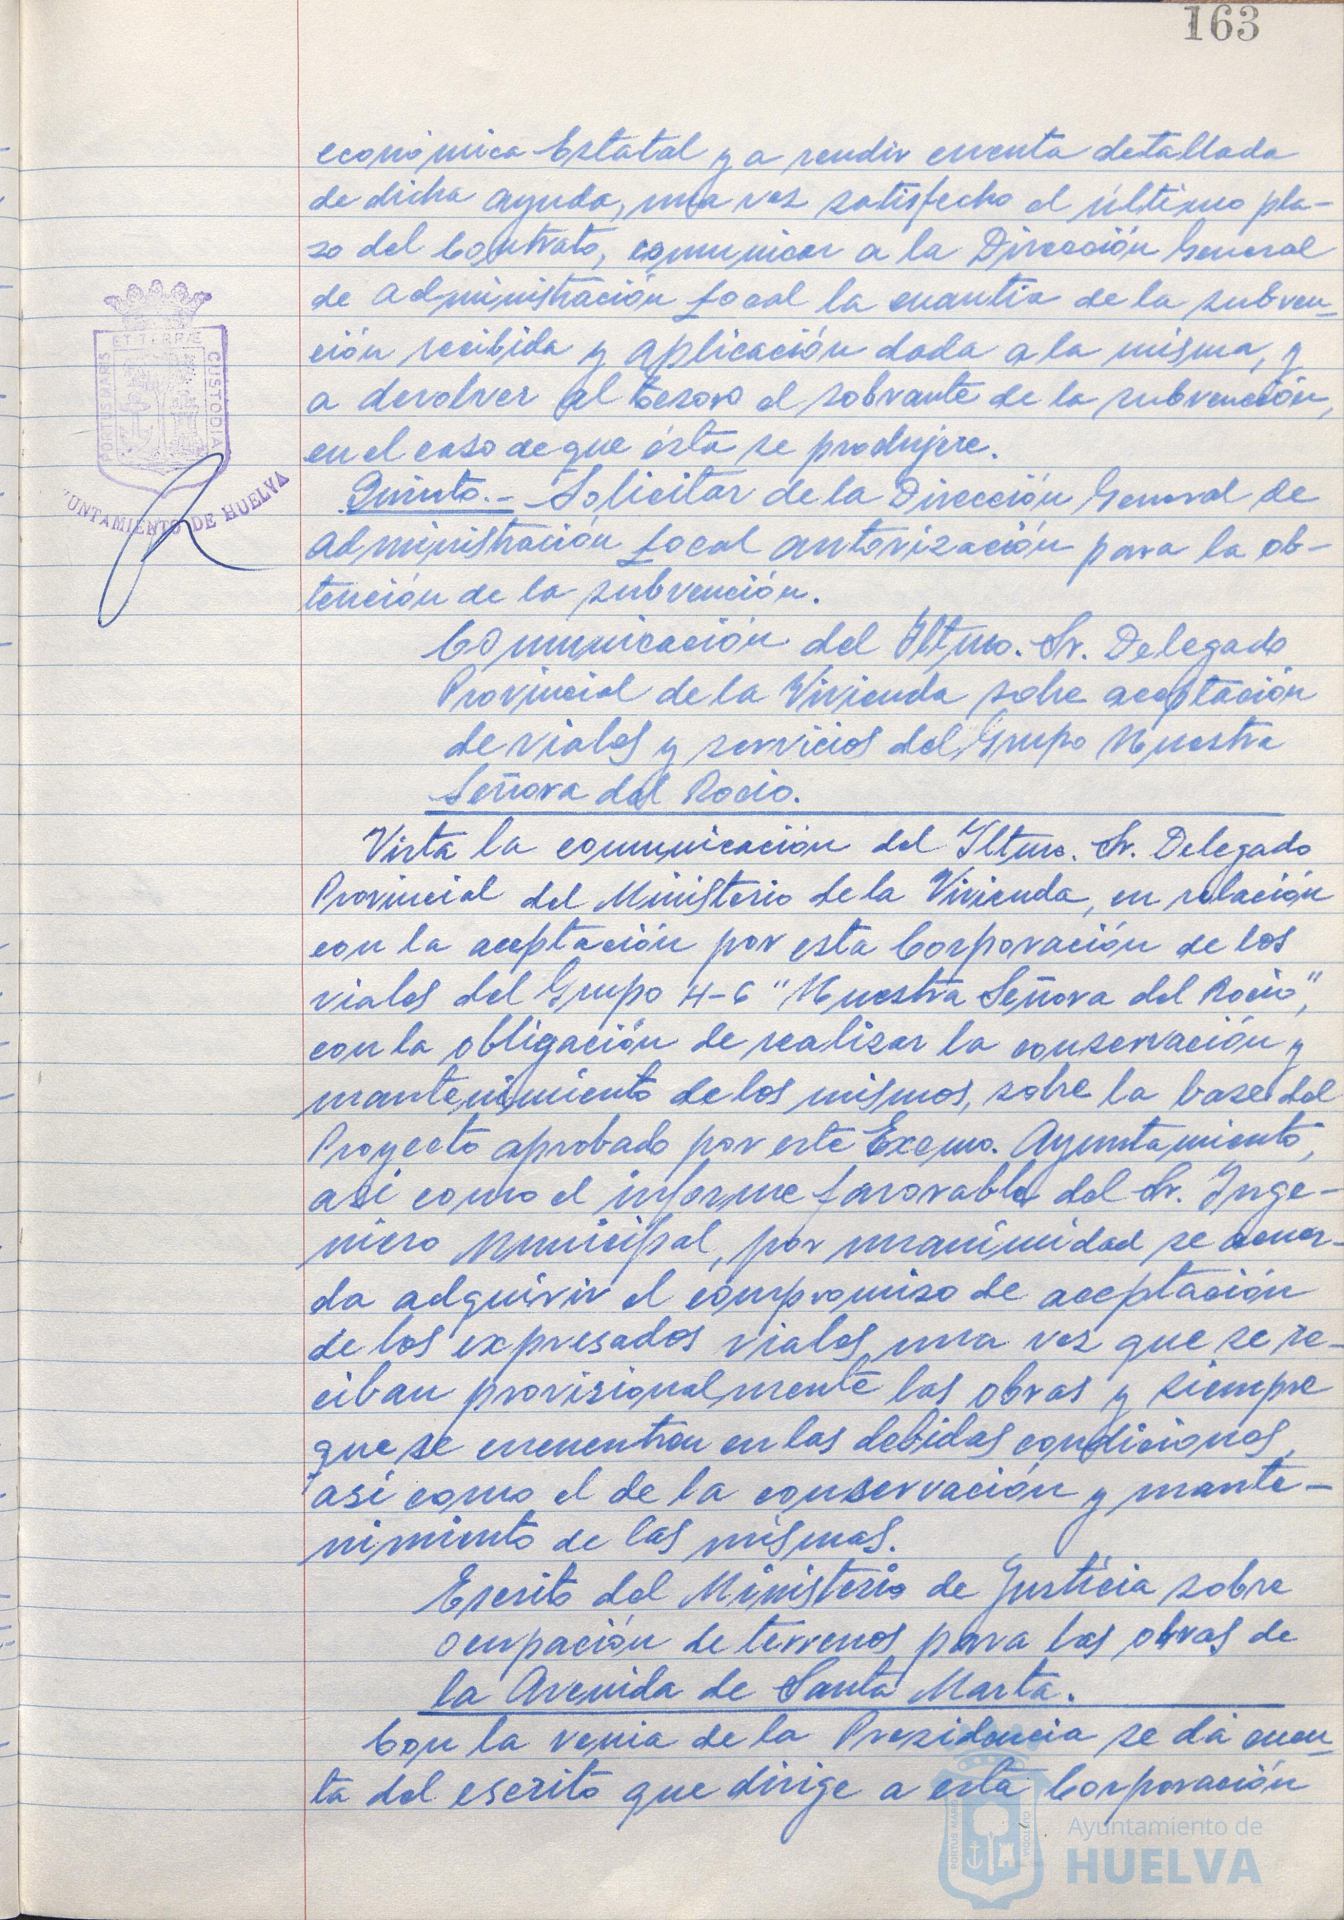 163
económica Estatal y a rendir cuenta detallada
de dicha ayuda, una vez satisfecho el último pla-
zo del Contrato, comunicar a la Dirección General
de Administración Local la cuantía de la subven-
ción recibida y aplicación dada a la misma, y
a devolver al Tesoro el sobrante de la subvención,
en el caso de que ésta se produjere.
Quinto.- Solicitar de la Dirección General de
Administración Local autorización para la ob-
tención de la subvención.
Comunicación del Iltmo. Sr. Delegado
Provincial de la Vivienda sobre aceptación
de viales y servicios del Grupo Nuestra
Señora del Rocio.
Vista la comunicación del Iltmo. Sr. Delegado
Provincial del Ministerio de la Vivienda, en relación
con la aceptación por esta Corporación de los
viales del Grupo H-6 "Nuestra Señora del Rocio",
con la obligación de realizar la conservación y
mantenimiento de los mismos, sobre la base del
Proyecto aprobado por este Excmo. Ayuntamiento,
asi como el informe favorable del Sr. Inge-
niero Municipal, por unanimidad se acuer-
da adquirir el compromiso de aceptación
de los expresados viales una vez que se re-
ciban provisionalmente las obras y siempre
que se encuentren en las debidas condiciones,
así como el de la conservación y mante-
nimiento de las mismas.
Escrito del Ministerio de Justicia sobre
ocupación de terrenos para las obras de
la Avenida de Santa Marta.
Con la venia de la Presidencia se dá cuen-
ta del escrito que dirige a esta Corporación
ET TERRÆ
PORTUS MARIS
CUSTODIA
AYUNTAMIENTO DE HUELVA
PORTUS MARIS
CUSTODIA
Ayuntamiento de
HUELVA